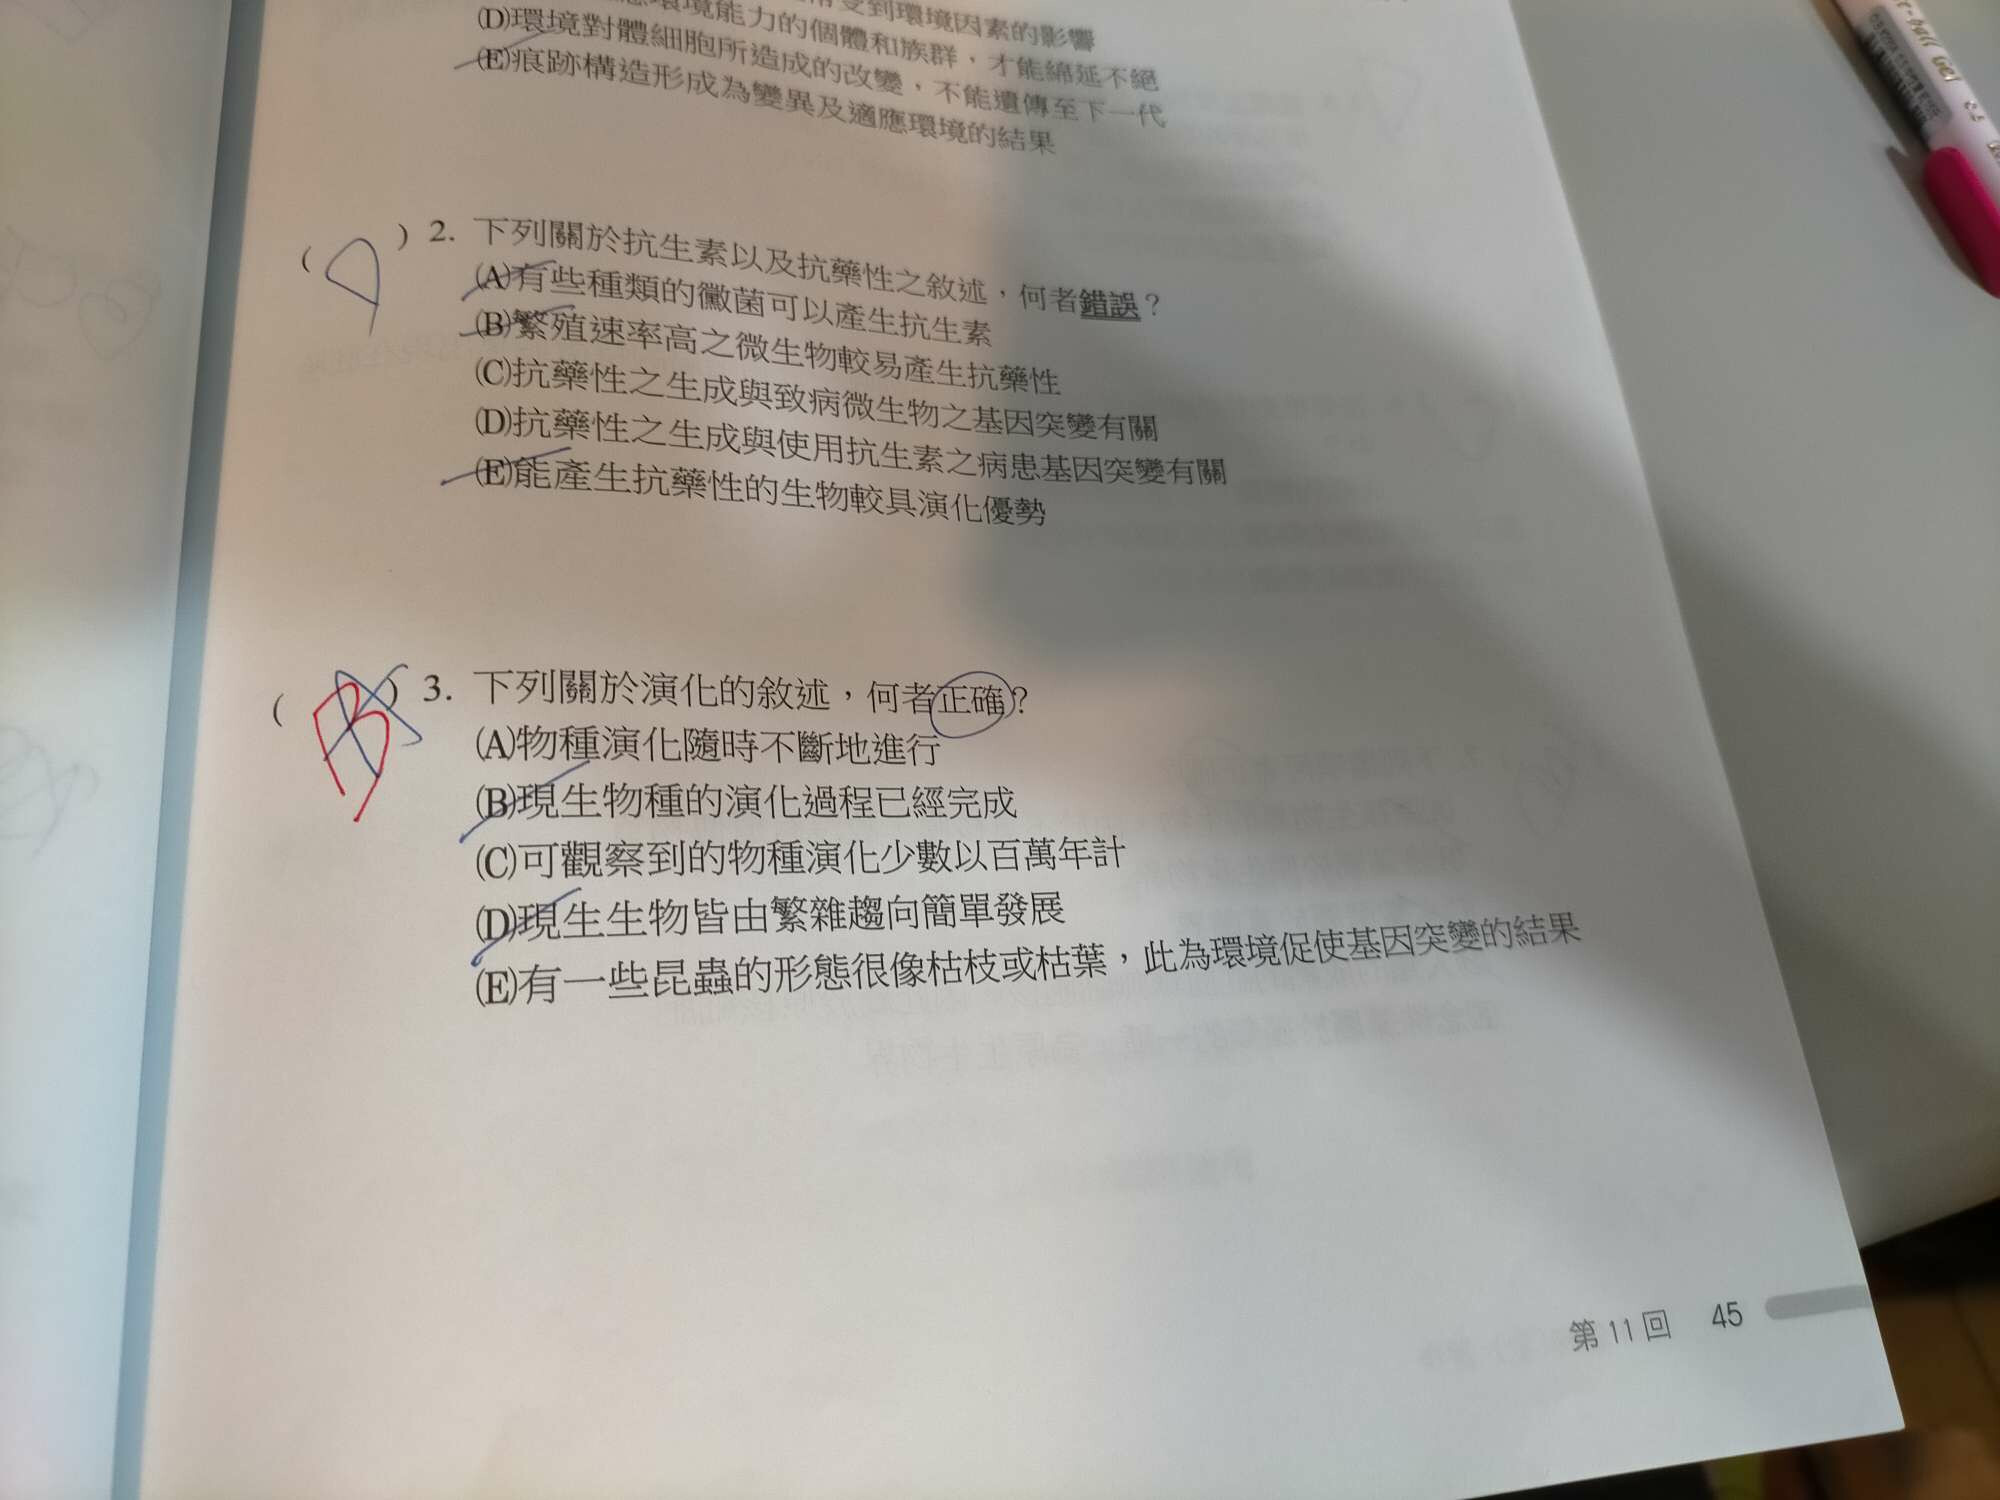 受到環境因素的影響
應環境能力的個體和族群，才能綿延不絕
(D)環境對體細胞所造成的改變，不能遺傳至下一代
(E)痕跡構造形成為變異及適應環境的結果
( ) 2. 下列關於抗生素以及抗藥性之敘述，何者錯誤？
(A)有些種類的黴菌可以產生抗生素
(B)繁殖速率高之微生物較易產生抗藥性
(C)抗藥性之生成與致病微生物之基因突變有關
(D)抗藥性之生成與使用抗生素之病患基因突變有關
(E)能產生抗藥性的生物較具演化優勢
( ) 3. 下列關於演化的敘述，何者正確？
(A)物種演化隨時不斷地進行
(B)現生物種的演化過程已經完成
(C)可觀察到的物種演化少數以百萬年計
(D)現生生物皆由繁雜趨向簡單發展
(E)有一些昆蟲的形態很像枯枝或枯葉，此為環境促使基因突變的結果
第 11 回 45